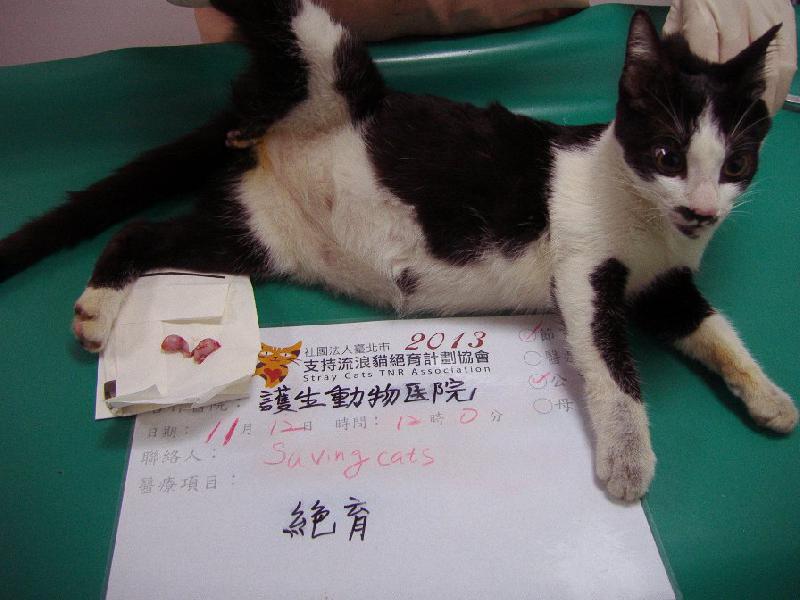 社團法人臺北市 2013
支持流浪貓絕育計劃協會
Stray Cats TNR Association
節
護生動物医院
醫
公
母
日期: 11月12日 時間: 12時0分
聯絡人: Saving cats
醫療項目:
絕育